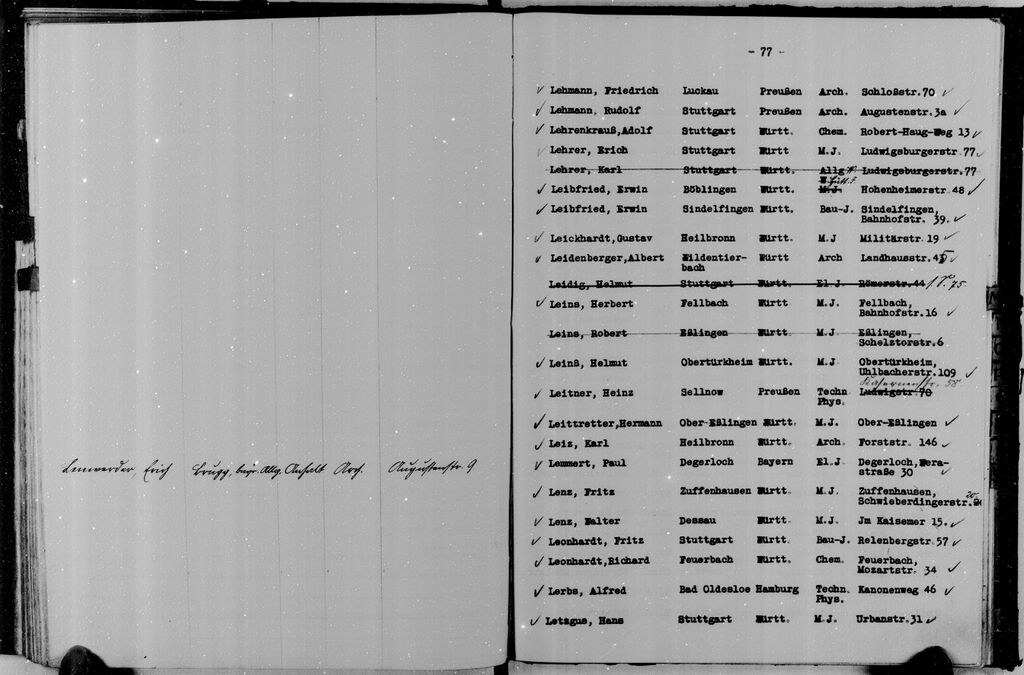 Erich Brugg, Allg. Anhalt Arch. Augustenstr. 9
- 77 -
Lehmann, Friedrich Luckau Preußen Arch. Schloßstr.70
Lehmann, Rudolf Stuttgart Preußen Arch. Augustenstr.3a
Lehrenkrauß,Adolf Stuttgart Württ. Chem. Robert-Haug-Weg 13
Lehrer, Erich Stuttgart Württ M.J. Ludwigsburgerstr.77
Lehrer, Karl Stuttgart Württ. Allg Ludwigsburgerstr.77
Leibfried, Erwin Böblingen Württ. M.J Hohenheimerstr.48
Leibfried, Erwin Sindelfingen Württ. Bau-J. Sindelfingen,
Bahnhofstr. 39.
Leickhardt,Gustav Heilbronn Württ. M.J Militärstr.19
Leidenberger,Albert Wildentier- Württ Arch Landhausstr.45
bach
Leidig, Helmut Stuttgart Württ. El.J. Römerstr.44 75
Leins, Herbert Fellbach Württ M.J. Fellbach,
Bahnhofstr.16
Leins, Robert Eßlingen Württ M.J Eßlingen,
Schelztorstr.6
Leinß, Helmut Obertürkheim Württ. M.J Obertürkheim,
Uhlbacherstr.109
Kasernenstr. 58
Leitner, Heinz Sellnow Preußen Techn Ludwigstr 70
Phys.
Leittretter,Hermann Ober-Eßlingen Württ. M.J. Ober-Eßlingen
Leiz, Karl Heilbronn Württ. Arch. Forststr. 146
Lemmert, Paul Degerloch Bayern El.J Degerloch,Wera-
straße 30
Lenz, Fritz Zuffenhausen Württ. M.J. Zuffenhausen,
Schwieberdingerstr. 20
Lenz, Walter Dessau Württ. M.J. Jm Kaisemer 15.
Leonhardt, Fritz Stuttgart Württ. Bau-J. Relenbergstr.57
Leonhardt,Richard Feuerbach Württ. Chem. Feuerbach,
Mozartstr. 34
Lerbs, Alfred Bad Oldesloe Hamburg Techn. Kanonenweg 46
Phys.
Letzgus, Hans Stuttgart Württ. M.J. Urbanstr.31